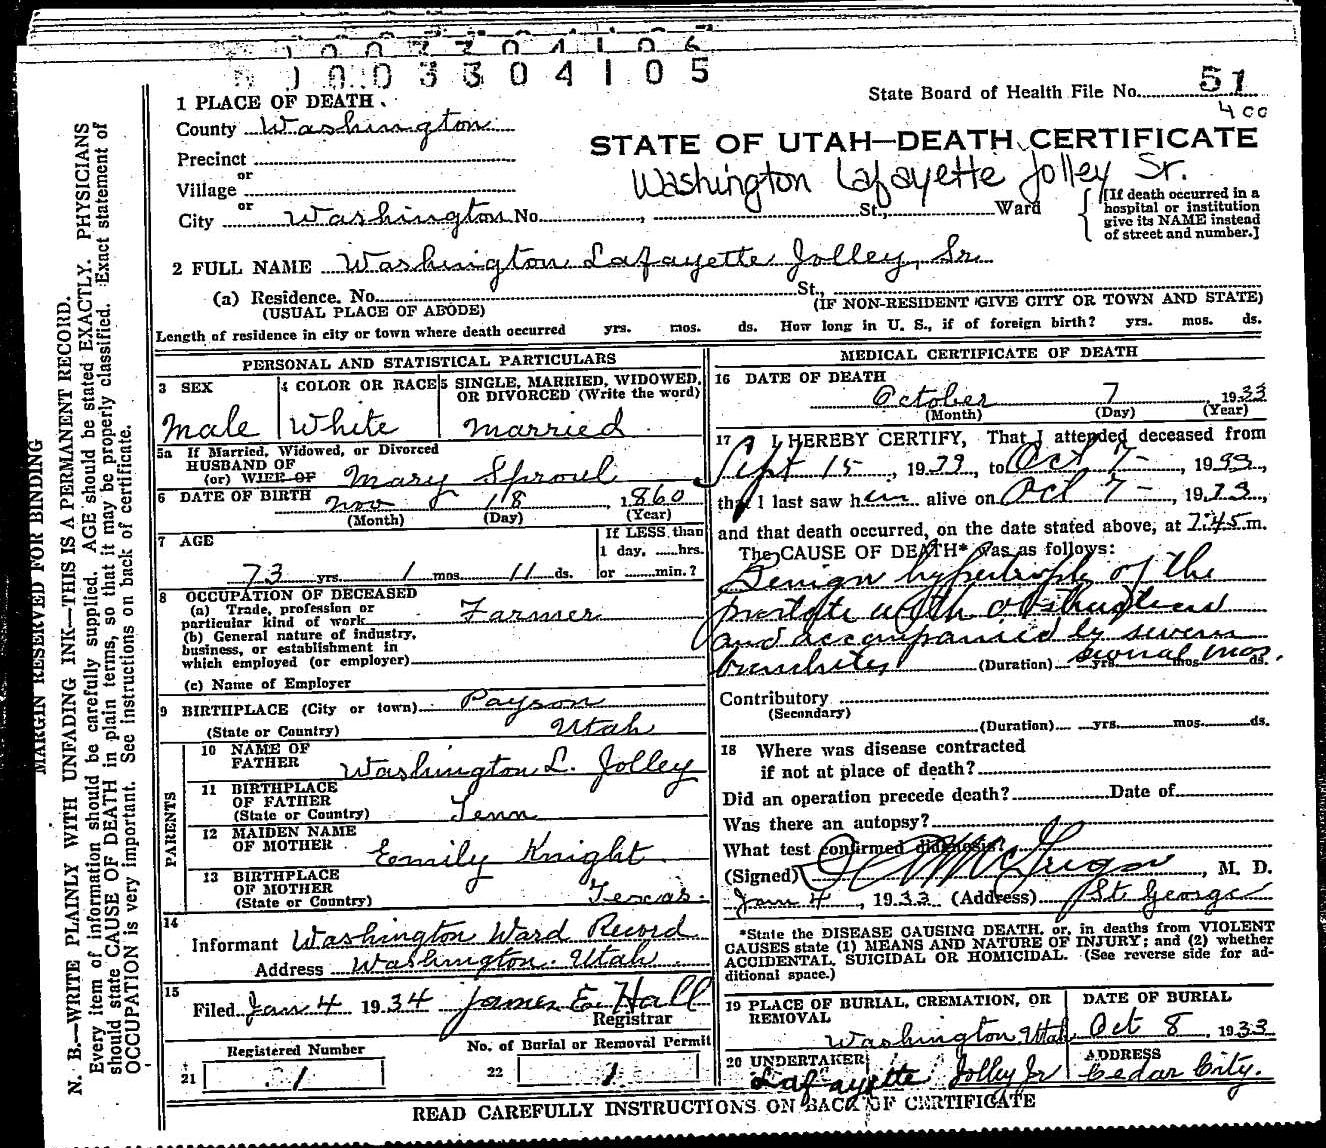 1003304106
1003304105
State Board of Health File No. 51
400
1 PLACE OF DEATH
County Washington
STATE OF UTAH—DEATH CERTIFICATE
Precinct
or
Village
Washington Lafayette Jolley Sr.
or
City Washington No. , St., Ward
[If death occurred in a
hospital or institution
give its NAME instead
of street and number.]
2 FULL NAME Washington Lafayette Jolley, Sr.
(a) Residence. No. St.,
(USUAL PLACE OF ABODE) (IF NON-RESIDENT GIVE CITY OR TOWN AND STATE)
Length of residence in city or town where death occurred yrs. mos. ds. How long in U. S., if of foreign birth? yrs. mos. ds.
PERSONAL AND STATISTICAL PARTICULARS
3 SEX
Male
4 COLOR OR RACE
White
5 SINGLE, MARRIED, WIDOWED,
OR DIVORCED (Write the word)
Married
5a If Married, Widowed, or Divorced
HUSBAND OF
(or) WIFE OF Mary Sproul
6 DATE OF BIRTH Nov 18, 1860
(Month) (Day) (Year)
7 AGE
If LESS than
1 day, hrs.
73 yrs. 1 mos. 11 ds. or min.?
8 OCCUPATION OF DECEASED
(a) Trade, profession or
particular kind of work Farmer
(b) General nature of industry,
business, or establishment in
which employed (or employer)
(c) Name of Employer
9 BIRTHPLACE (City or town) Payson
(State or Country) Utah
PARENTS
10 NAME OF
FATHER Washington L. Jolley
11 BIRTHPLACE
OF FATHER
(State or Country) Tenn
12 MAIDEN NAME
OF MOTHER Emily Knight
13 BIRTHPLACE
OF MOTHER
(State or Country) Texas
14
Informant Washington Ward Record
Address Washington. Utah
15
Filed Jan 4 1934 James E. Hall
Registrar
Registered Number
21 1
No. of Burial or Removal Permit
22 1
MEDICAL CERTIFICATE OF DEATH
16 DATE OF DEATH
October 7, 1933
(Month) (Day) (Year)
17 I HEREBY CERTIFY, That I attended deceased from
Sept 15, 1933, to Oct 7, 1933,
that I last saw him alive on Oct 7, 1933,
and that death occurred, on the date stated above, at 7:45 m.
The CAUSE OF DEATH* was as follows:
Benign hypertrophy of the
prostate with obstruction
and accompanied by severe
bronchitis (Duration) yrs. several mos. ds.
Contributory
(Secondary)
(Duration) yrs. mos. ds.
18 Where was disease contracted
if not at place of death?
Did an operation precede death? Date of
Was there an autopsy?
What test confirmed diagnosis?
(Signed) McGregor, M. D.
Jan 4, 1933 (Address) St. George
*State the DISEASE CAUSING DEATH, or, in deaths from VIOLENT
CAUSES state (1) MEANS AND NATURE OF INJURY; and (2) whether
ACCIDENTAL, SUICIDAL OR HOMICIDAL. (See reverse side for ad-
ditional space.)
19 PLACE OF BURIAL, CREMATION, OR
REMOVAL
Washington, Utah
DATE OF BURIAL
Oct 8, 1933
20 UNDERTAKER
Lafayette Jolley Jr
ADDRESS
Cedar City.
READ CAREFULLY INSTRUCTIONS ON BACK OF CERTIFICATE
MARGIN RESERVED FOR BINDING
N. B.—WRITE PLAINLY WITH UNFADING INK—THIS IS A PERMANENT RECORD.
Every item of information should be carefully supplied. AGE should be stated EXACTLY. PHYSICIANS
should state CAUSE OF DEATH in plain terms, so that it may be properly classified. Exact statement of
OCCUPATION is very important. See instructions on back of certificate.